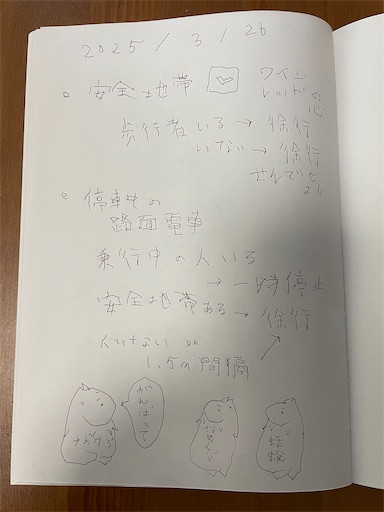 2025/3/26
○ 安全地帯 ワインレッドの心
歩行者いる→徐行
いない→徐行せんでもよし
○ 停車中の
路面電車
乗行中の人いる
→一時停止
安全地帯ある→徐行
人いない or
1.5m間隔
がんばって